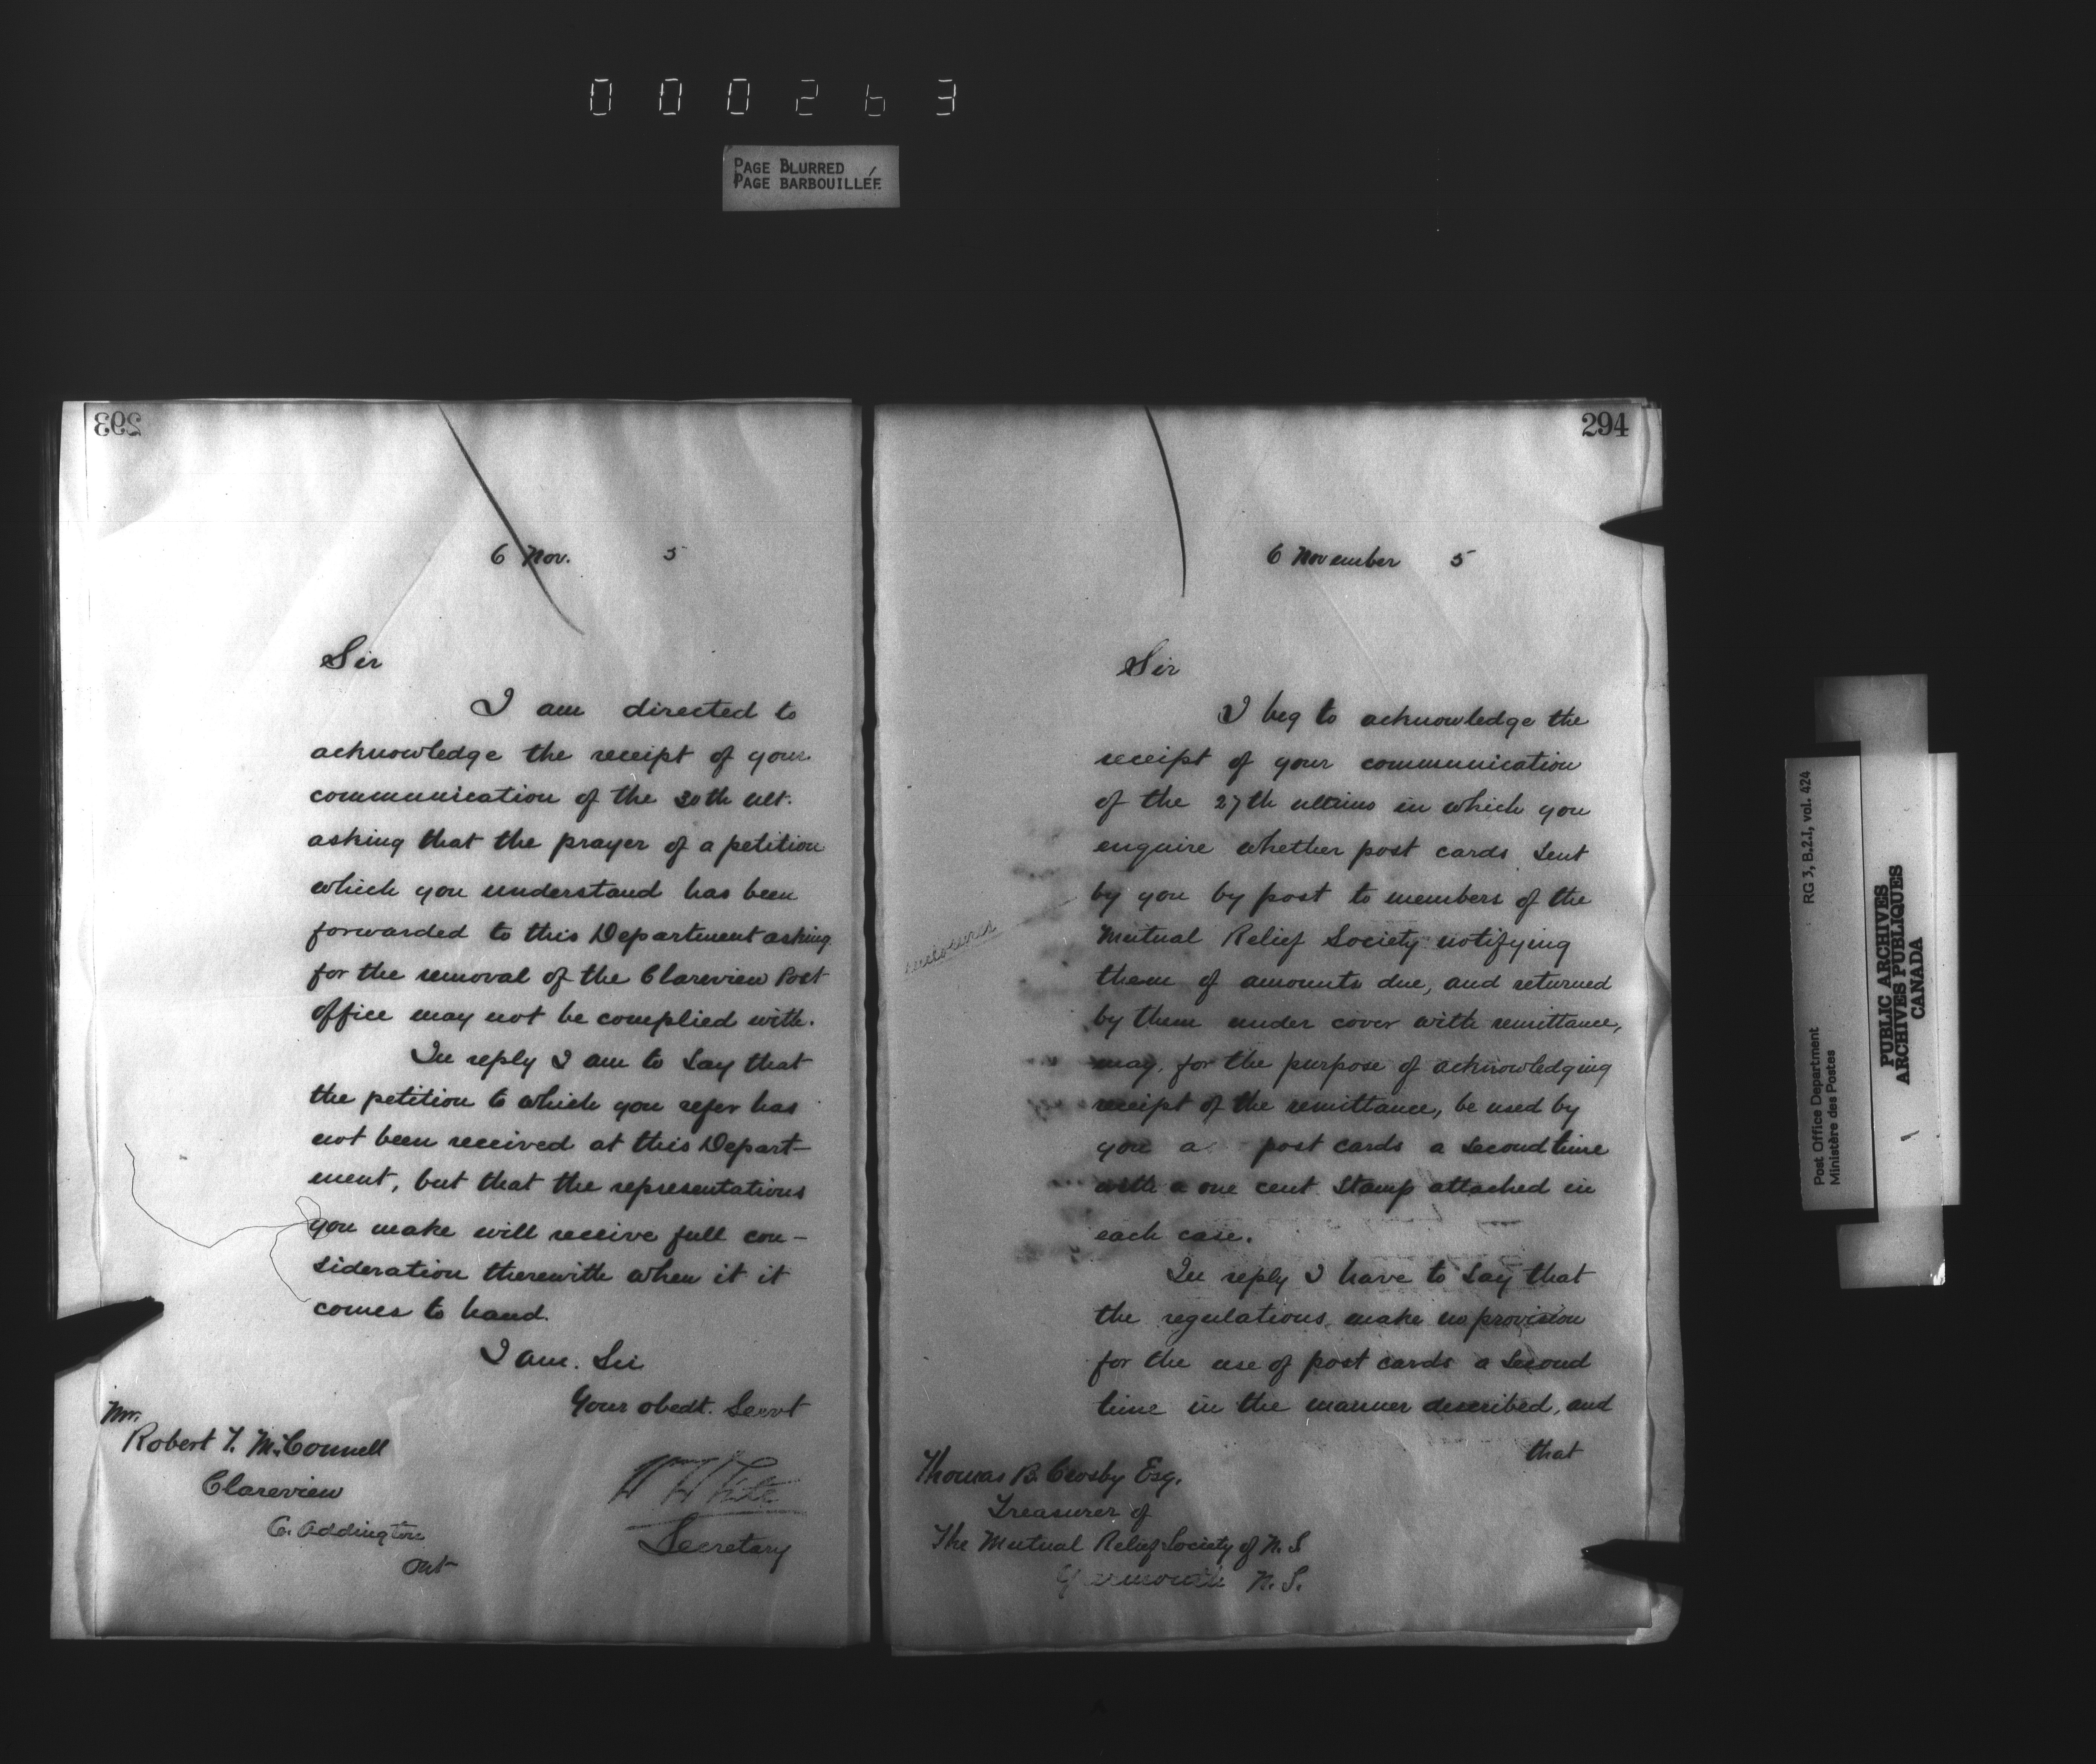 000263
PAGE BLURRED
PAGE BARBOUILLÉE
293
6 Nov. 5
Sir
I am directed to
acknowledge the receipt of your
communication of the 30th ult.
asking that the prayer of a petition
which you understand has been
forwarded to this Department asking
for the removal of the Clareview Post
Office may not be complied with.
In reply I am to say that
the petition to which you refer has
not been received at this Depart-
ment, but that the representations
you make will receive full con-
sideration therewith when it it
comes to hand.
I am. Sir
Your obedt. Servt
Mr.
Robert T. McConnell
Clareview
C. Addington
Ont
W H White
Secretary
294
6 November 5
Sir
I beg to acknowledge the
receipt of your communication
of the 27th ultimo in which you
enquire whether post cards sent
by you by post to members of the
Mutual Relief Society notifying
them of amounts due, and returned
by them under cover with remittance,
may, for the purpose of acknowledging
receipt of the remittance, be used by
you a post cards a second time
with a one cent stamp attached in
each case.
In reply I have to say that
the regulations make no provision
for the use of post cards a second
time in the manner described, and
that
Thomas B. Crosby Esq.
Treasurer of
The Mutual Relief Society of N. S
Yarmouth N. S.
RG 3, B.2.I, vol. 424
Post Office Department
Ministère des Postes
PUBLIC ARCHIVES
ARCHIVES PUBLIQUES
CANADA